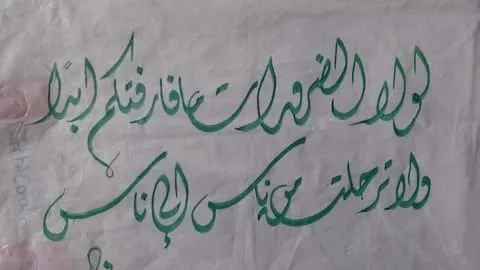 لولا الضرورات ما فارقتكم ابدًا
ولا ترحلت من ناس إلى ناس